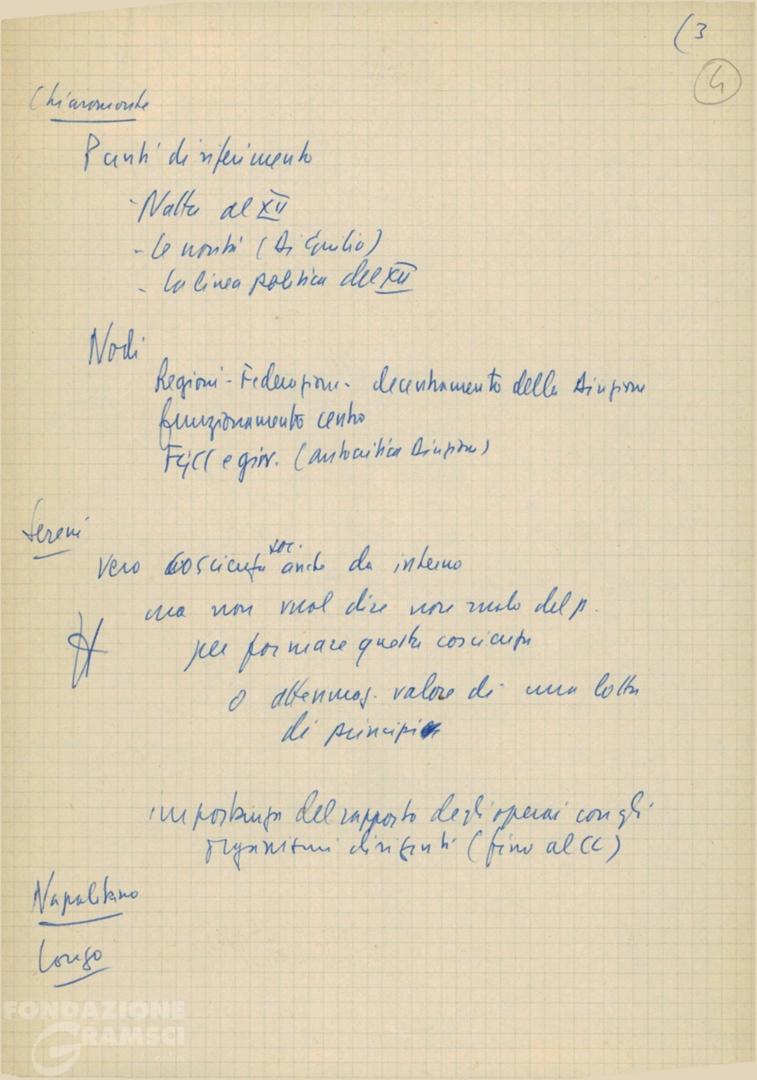 (3
4
Chiaromonte
Punti di riferimento
- Natta al XII
- le novità (Di Giulio)
- la linea politica del XII
Nodi
Regioni - Federazioni - decentramento della Direzione
funzionamento centro
FGCI e giov. (autocritica Direzione)
Sereni
vero coscienza soc. anche da interno
ma non vuol dire non ruolo del p.
per formare questa coscienza
o attenuaz. valore di una lotta
di principi
importanza del rapporto degli operai con gli
organismi dirigenti (fino al CC)
Napolitano
Longo
FONDAZIONE
GRAMSCI